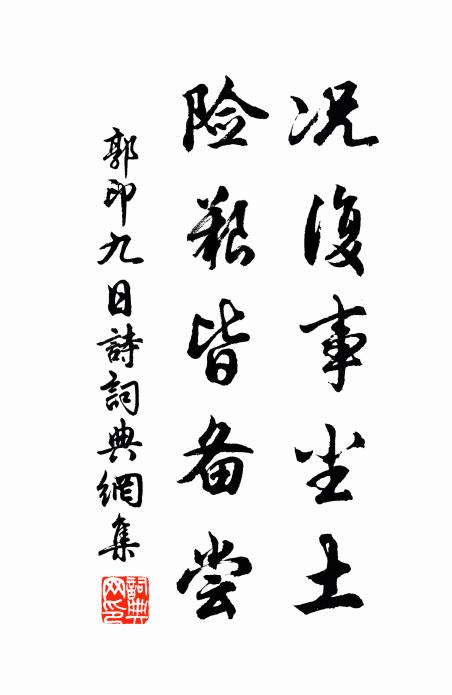 况復事尘土
险艱皆备尝
郭印九日詩詞典網集
詞典网印